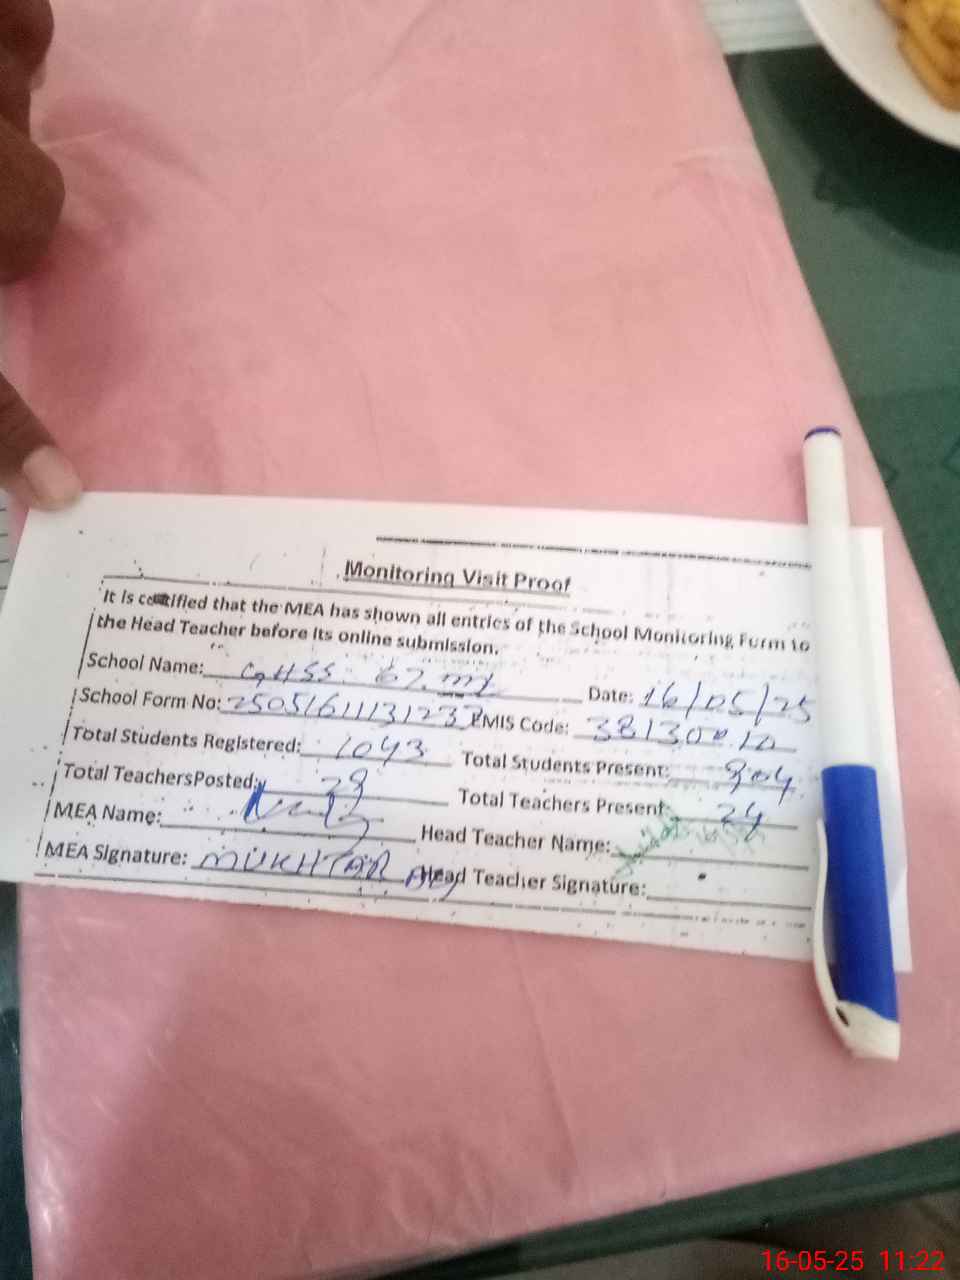 Monitoring Visit Proof
It is certified that the MEA has shown all entries of the School Monitoring Form to
the Head Teacher before its online submission.
School Name: GHSS 67. Date: 16/05/25
School Form No: EMIS Code:
Total Students Registered: 1043 Total Students Present: 904
Total Teachers Posted: Total Teachers Present 24
MEA Name: Head Teacher Name:
MEA Signature: MUKHTAR Head Teacher Signature:
16-05-25 11:22